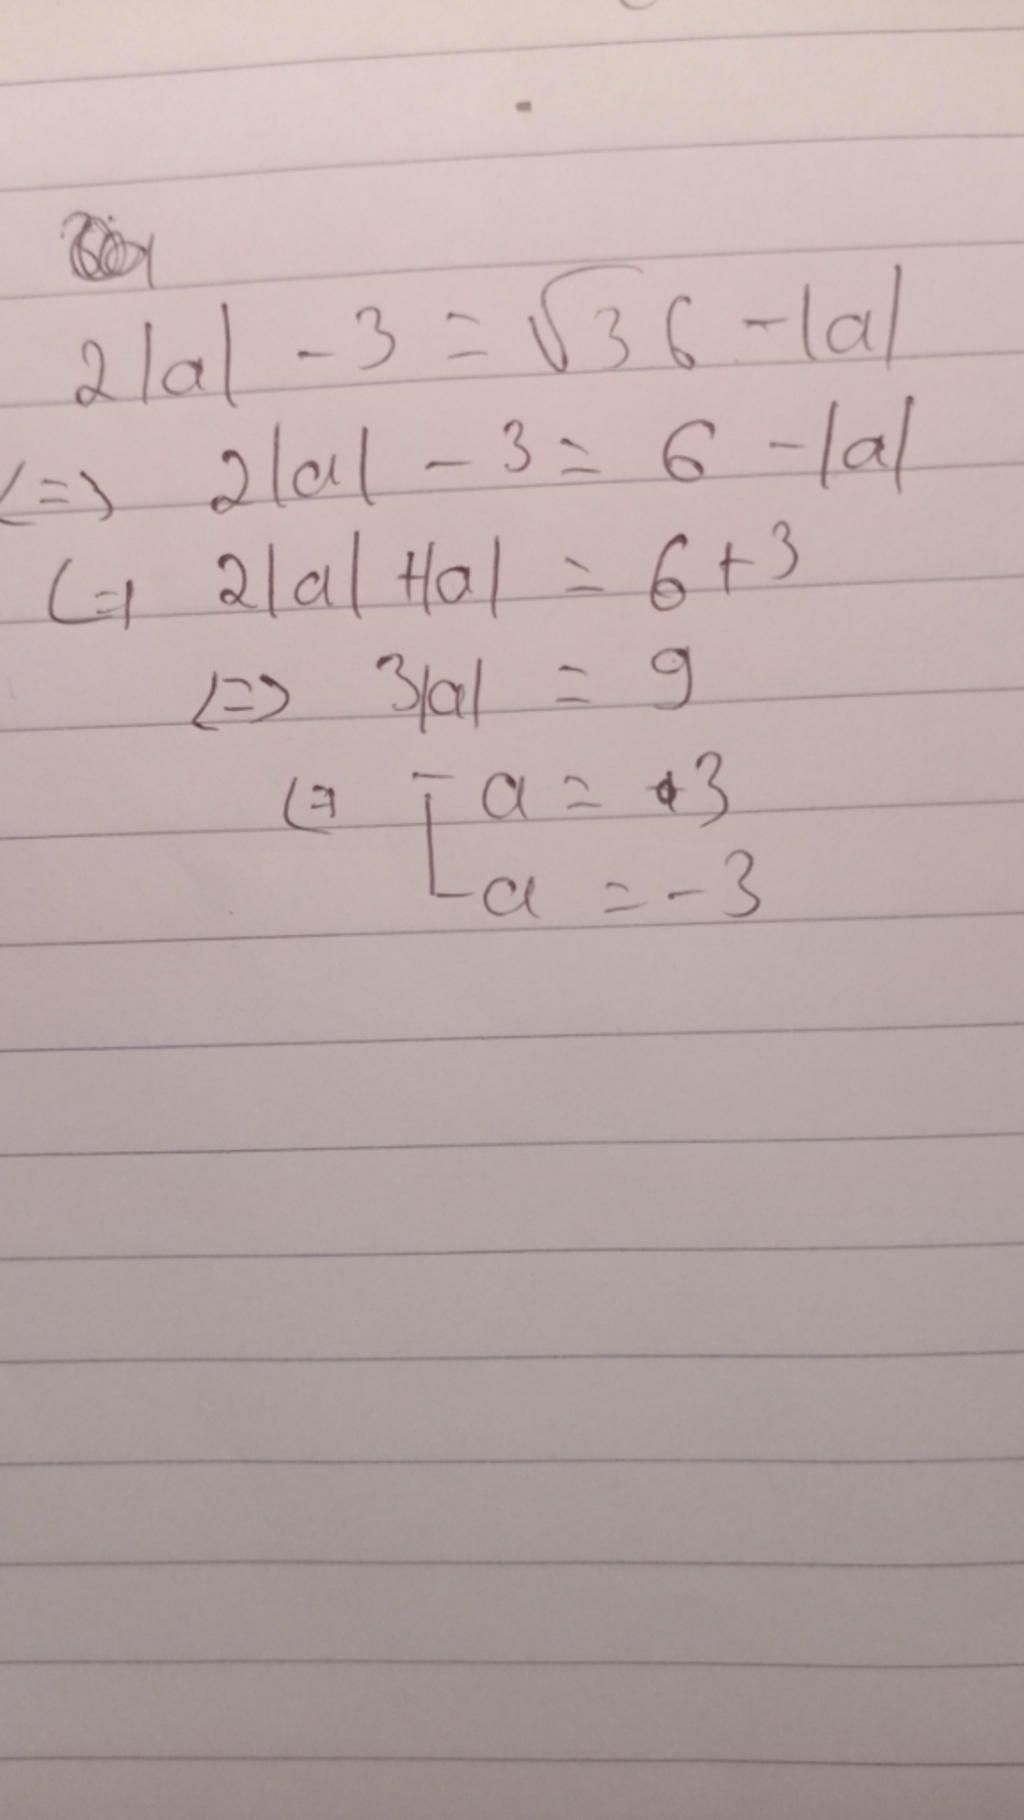 2|a| - 3 = √36 - |a|
<=> 2|a| - 3 = 6 - |a|
<=> 2|a| + |a| = 6 + 3
<=> 3|a| = 9
<=> [ a = 3
a = -3